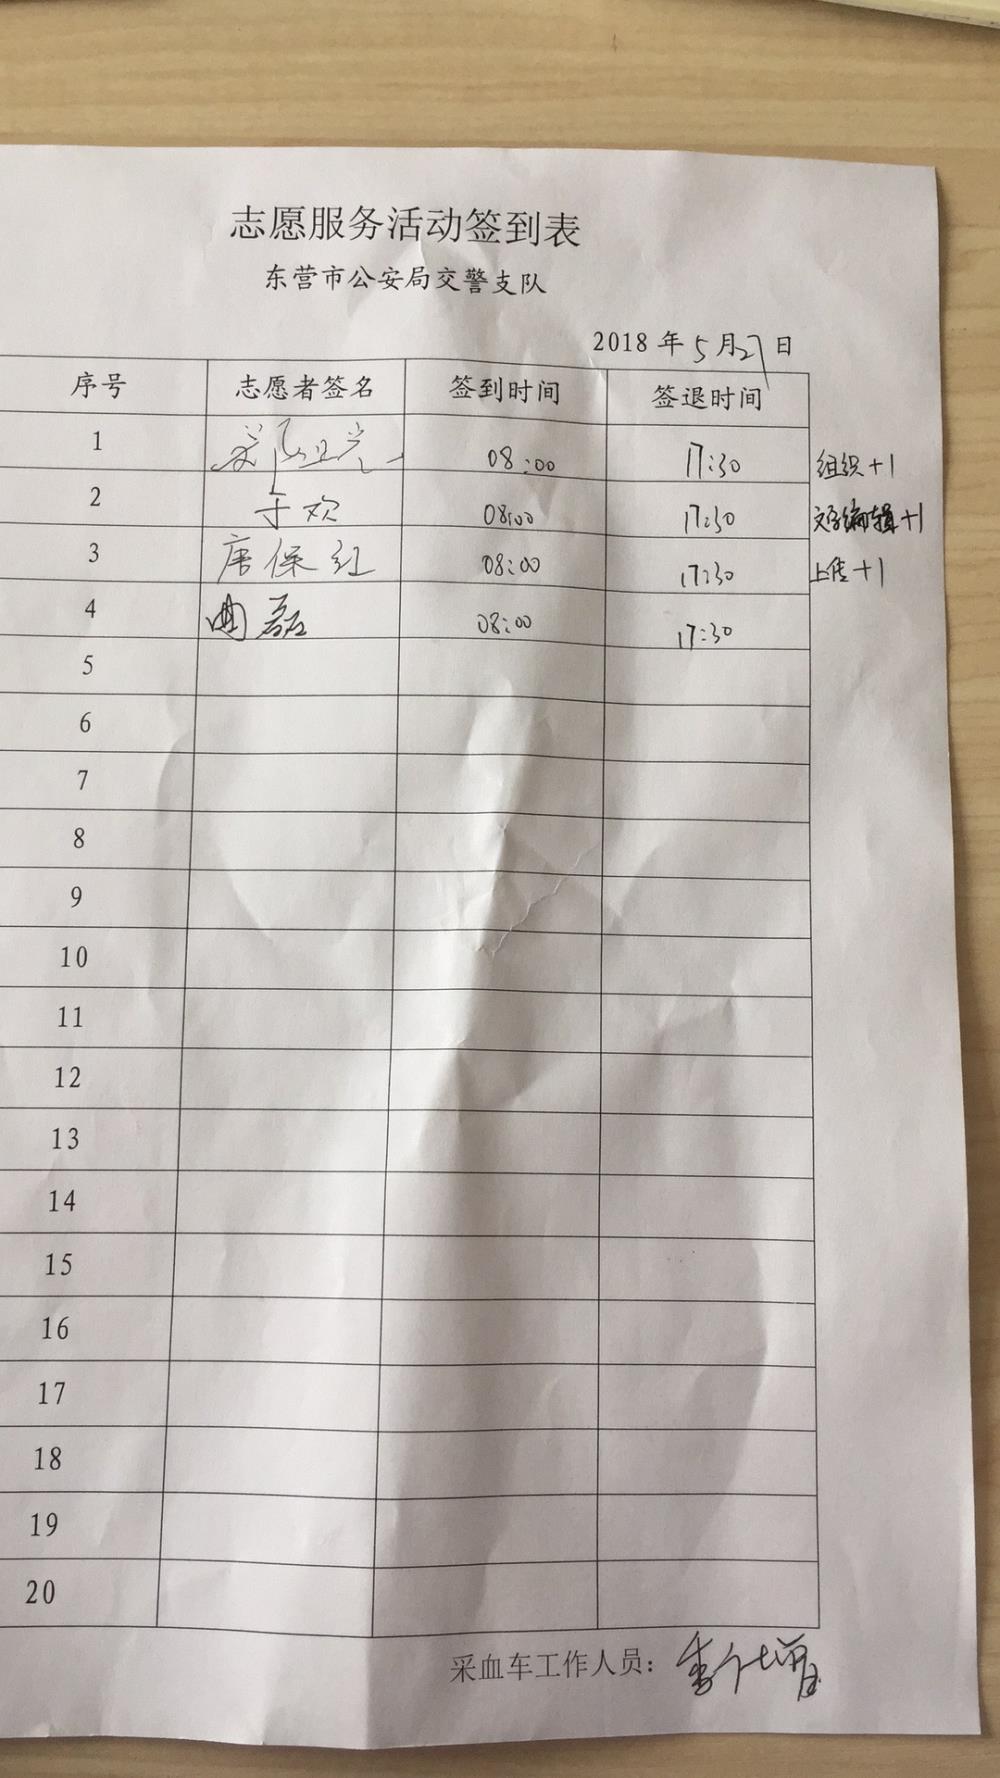 志愿服务活动签到表
东营市公安局交警支队
2018 年 5 月 27 日
序号 志愿者签名 签到时间 签退时间
1 08:00 17:30 组织+1
2 于欢 08:00 17:30 文字编辑+1
3 唐保红 08:00 17:30 上传+1
4 曲磊 08:00 17:30
5
6
7
8
9
10
11
12
13
14
15
16
17
18
19
20
采血车工作人员: